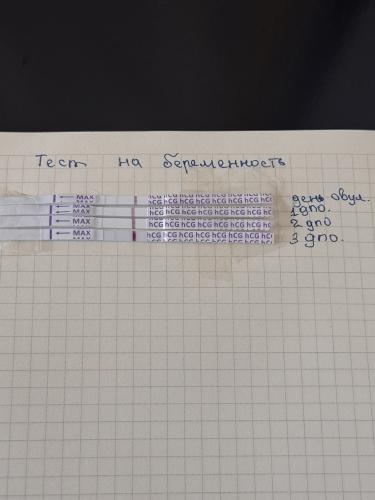 Тест на беременность
← MAX hCG hCG hCG hCG hCG hCG hCG hCG день овул.
← MAX hCG hCG hCG hCG hCG hCG hCG hCG 1 дпо.
← MAX hCG hCG hCG hCG hCG hCG hCG hCG 2 дпо
← MAX hCG hCG hCG hCG hCG hCG hCG 3 дпо.